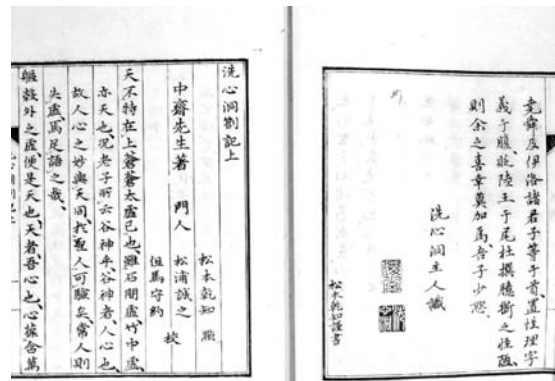 堯舜及伊洛諸君子等于首、置性理字
義于腹、貶陸王于尾、杜撰臆斷之怪陋、
則余之喜幸莫加焉、吾子少恕、
洗心洞主人識
松本乾知謹書
洗心洞劄記上
松本乾知
中齋先生著 門人 松浦誠之 校
但馬守約
天不特在上蒼蒼太虛已也、雖石間虛、竹中虛、
亦天也、況老子所云谷神乎、谷神者、人心也、
故人心之妙與天同、於聖人可驗矣、常人則
失虛、焉足語之哉、
軀殼外之虛便是天也、天者、吾心也、心葆含萬